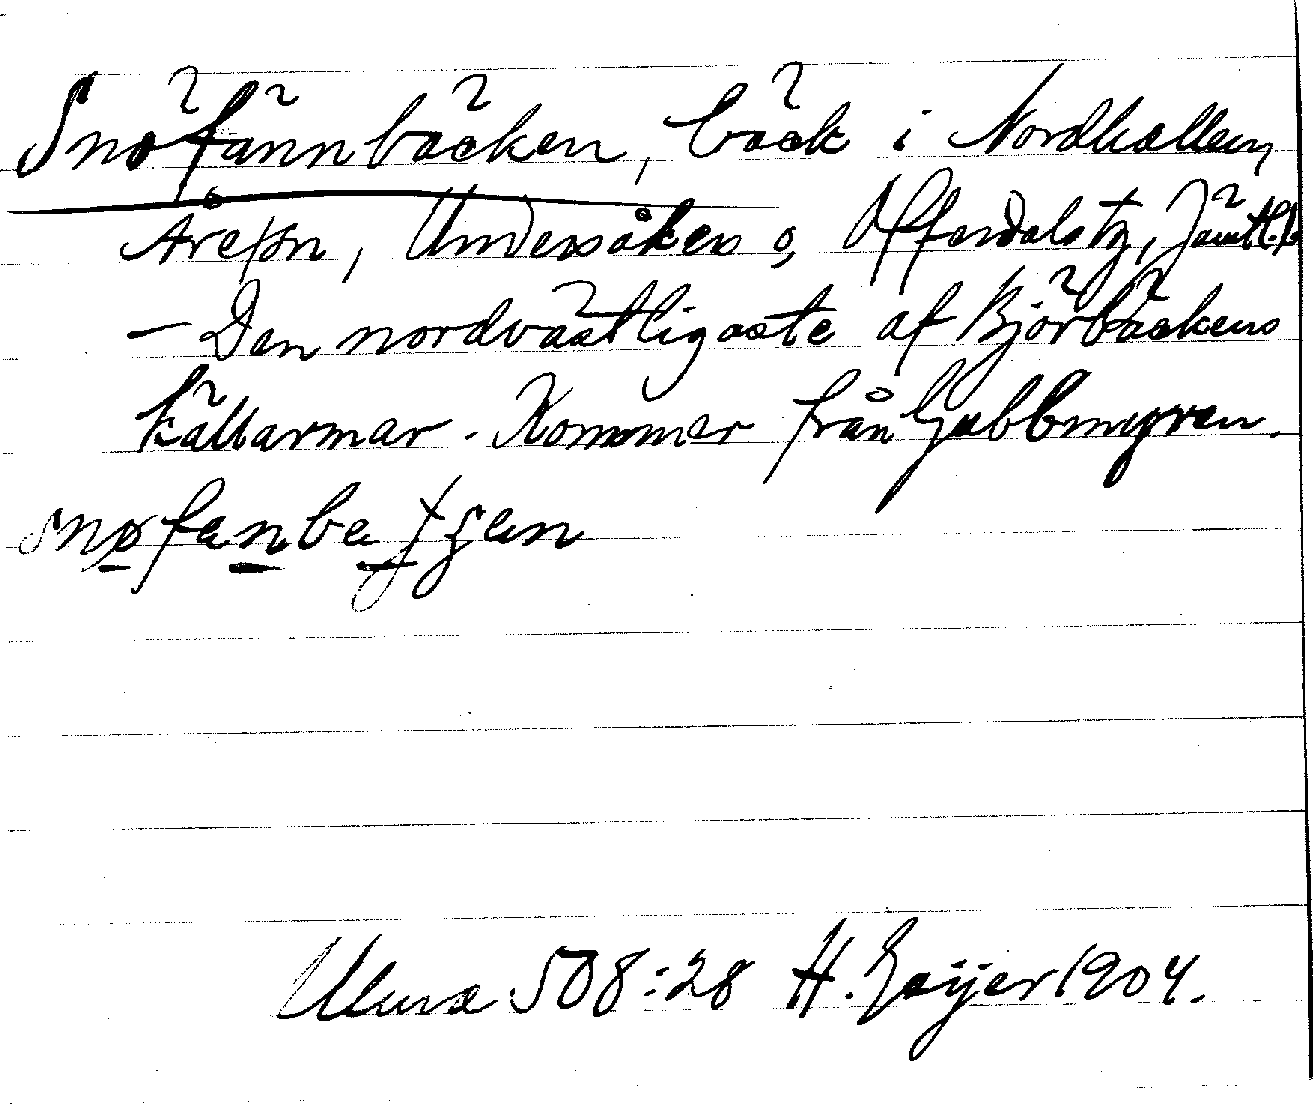 Snöfännbäcken, bäck i Nordhallen,
Åre sn, Undersåkers o. Offerdals tg, Jämtl. l.
— Den nordvästligaste af Björbäckens
källarmar. Kommer från Gubbmyren.
508:28 H. Geijer 1904.